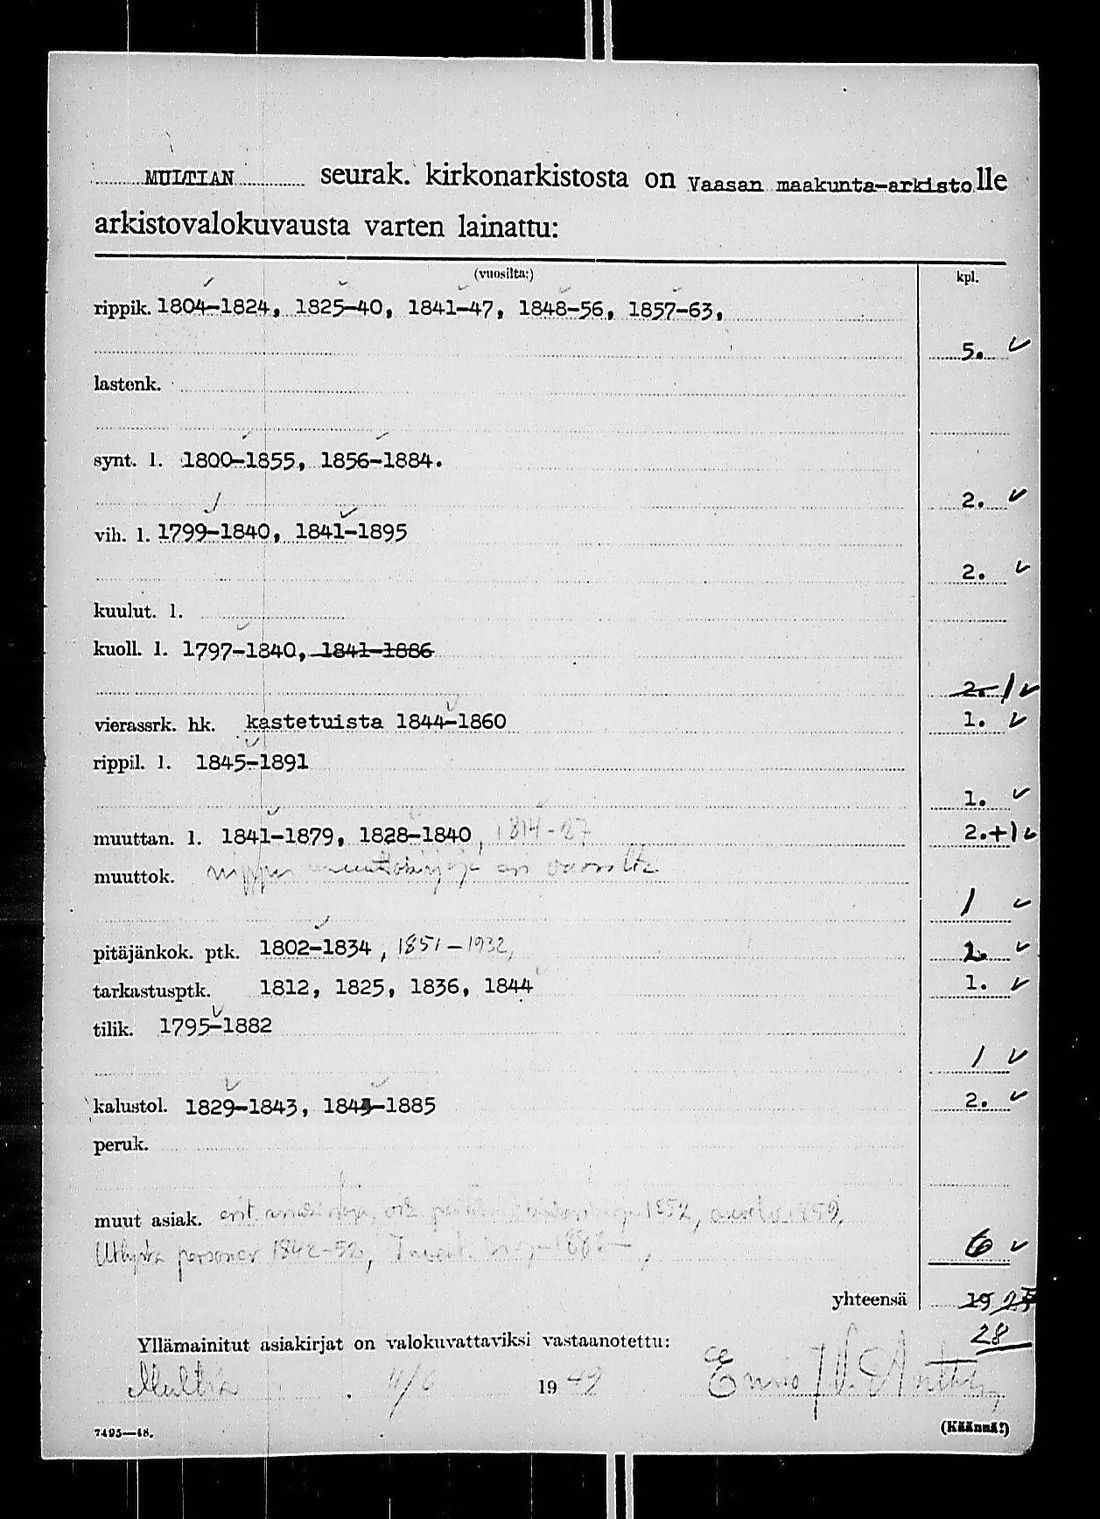 MULTIAN seurak. kirkonarkistosta on Vaasan maakunta-arkistolle
arkistovalokuvausta varten lainattu:
(vuosilta:) kpl.
rippik. 1804-1824, 1825-40, 1841-47, 1848-56, 1857-63,
5. ✓
lastenk.
synt. l. 1800-1855, 1856-1884.
2. ✓
vih. l. 1799-1840, 1841-1895
2. ✓
kuulut. l.
kuoll. l. 1797-1840, 1841-1886
2. 1 ✓
vierassrk. hk. kastetuista 1844-1860 1. ✓
rippil. l. 1845-1891
1. ✓
muuttan. l. 1841-1879, 1828-1840, 1814-27 2.+1 ✓
muuttok. nippu muuttokirjoja eri vuosilta
1 ✓
pitäjänkok. ptk. 1802-1834, 1851-1932, ✓
tarkastusptk. 1812, 1825, 1836, 1844 1. ✓
tilik. 1795-1882
1 ✓
kalustol. 1829-1843, 1843-1885 2. ✓
peruk.
muut asiak. 1852, 1859,
Utlysta personer 1842-52, 6 ✓
yhteensä 19
28
Yllämainitut asiakirjat on valokuvattaviksi vastaanotettu:
Multia . 11/6 1949
7495—48. (Käännä!)